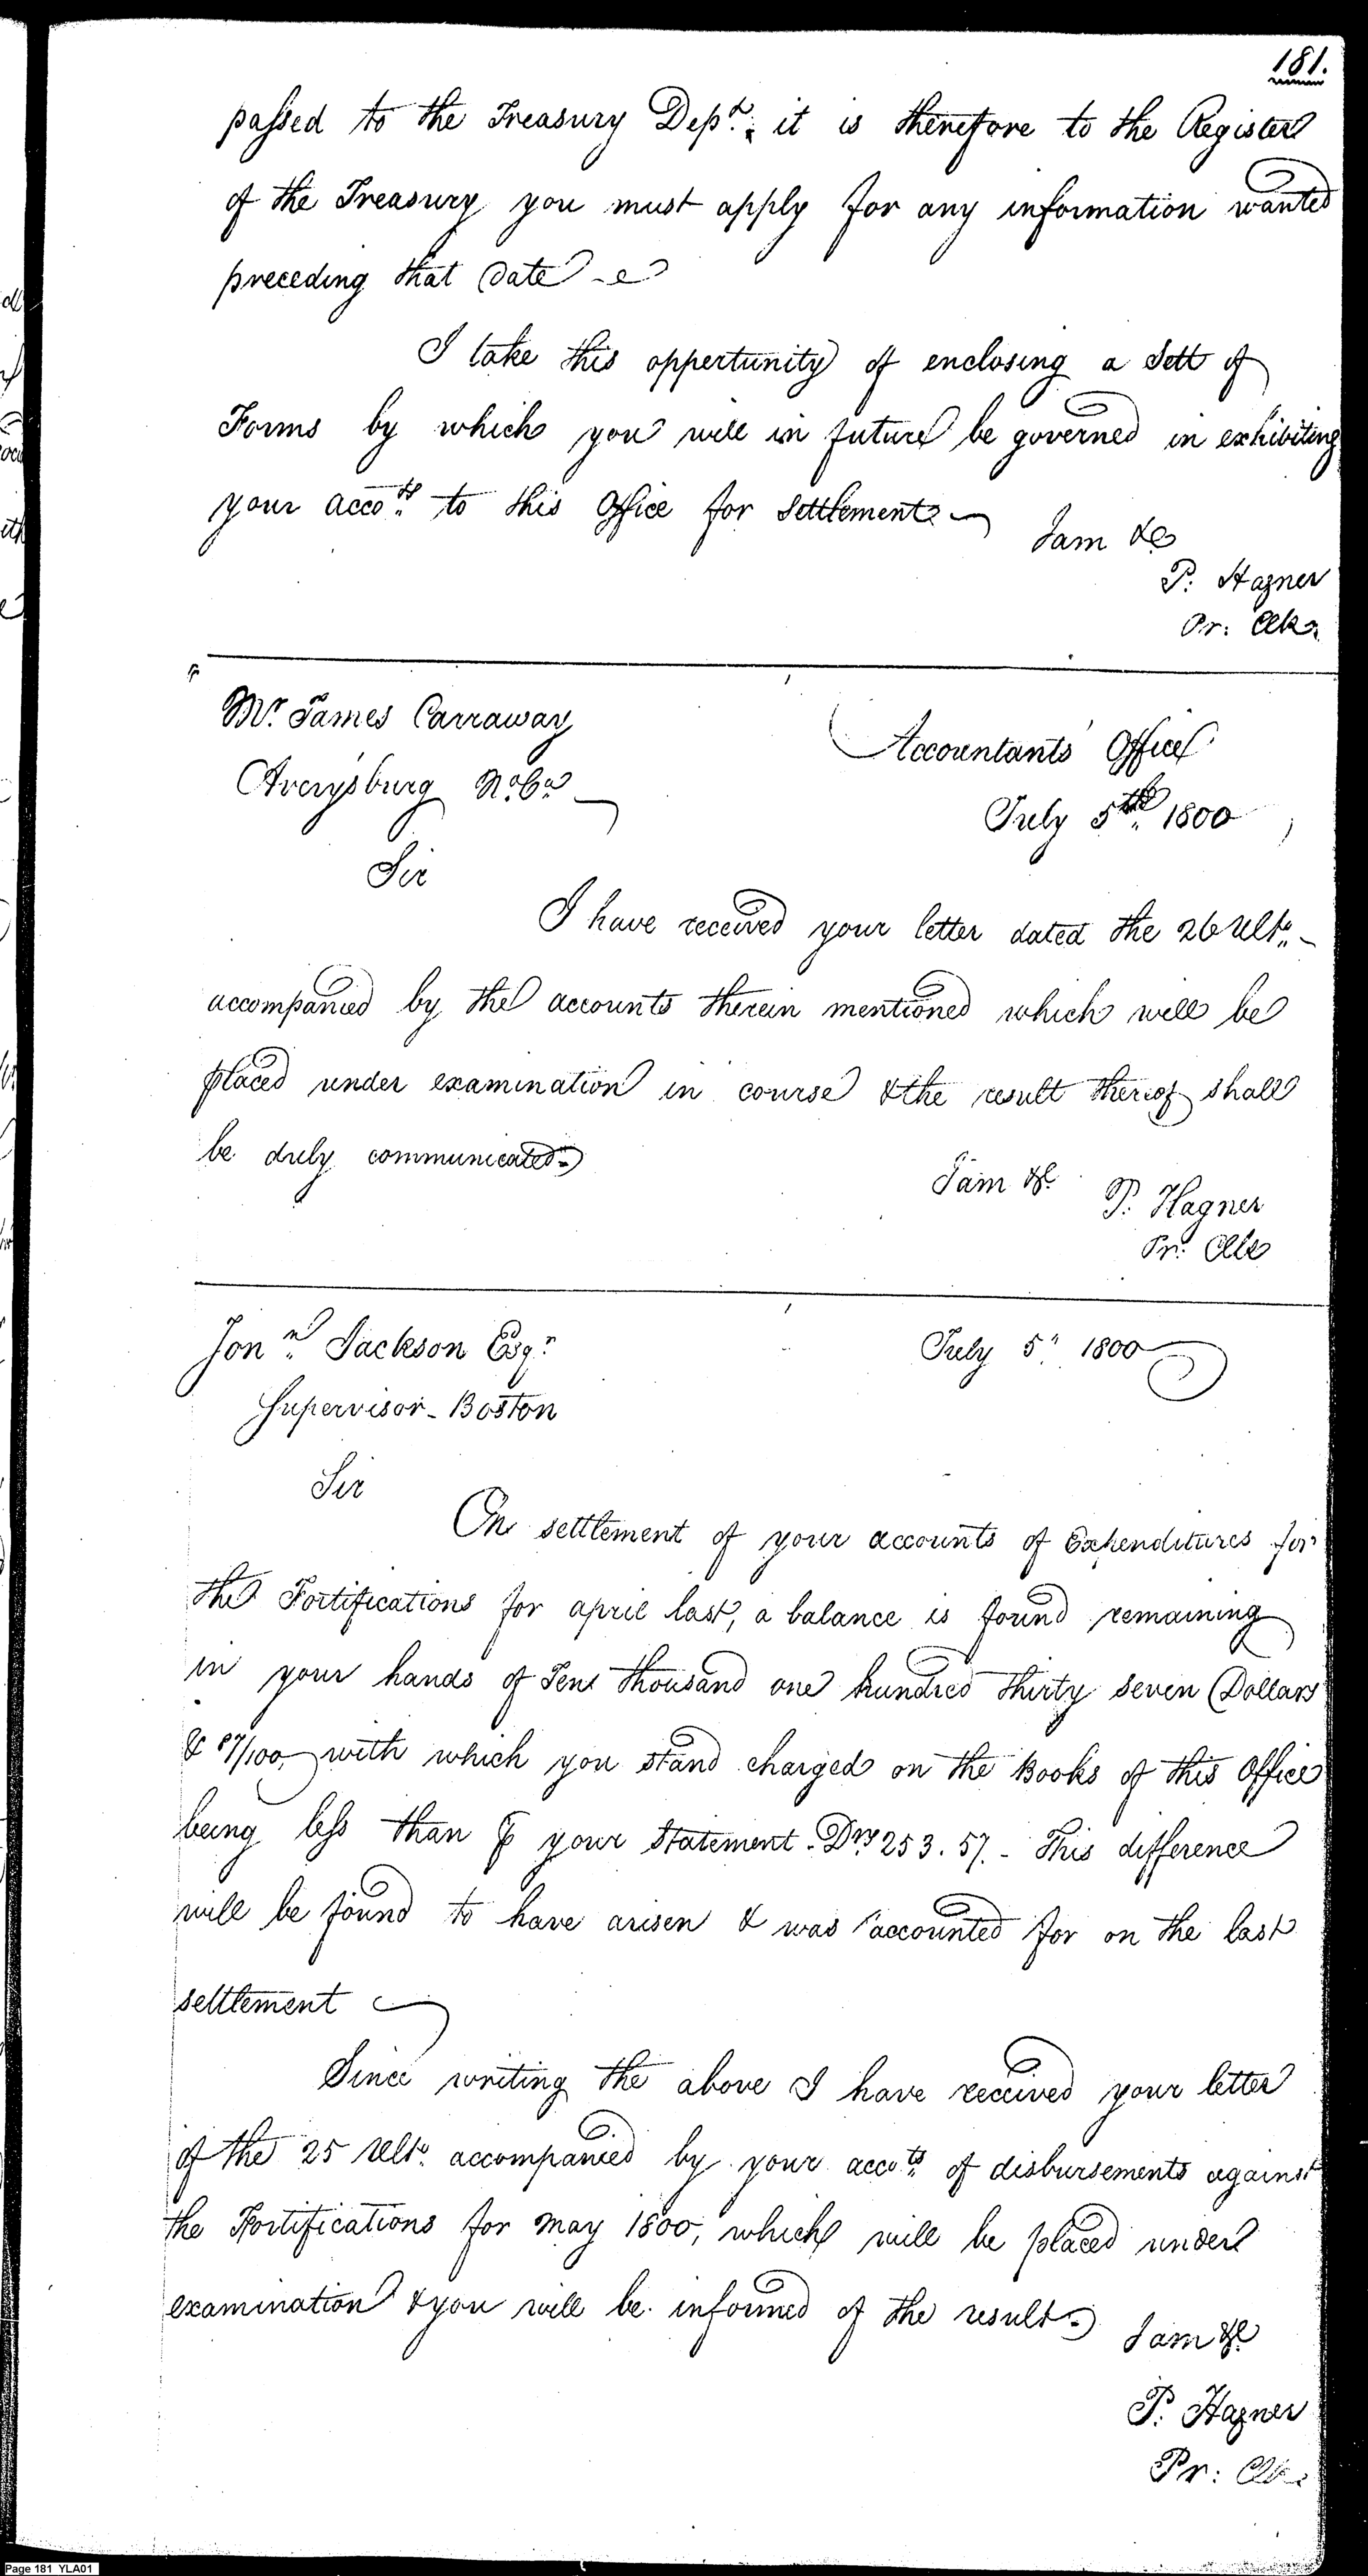 181.
passed to the Treasury Dept. it is therefore to the Register
of the Treasury you must apply for any information wanted
preceding that Date
I take this oppertunity of enclosing a Sett of
Forms by which you will in future be governed in exhibiting
your accots. to this Office for Settlement.
I am &c
P. Hagner
Pr: Clk.
Mr. James Carraway
Averysburg No. Ca.
Accountants Office
July 5th. 1800
Sir
I have received your letter dated the 26 Ulto.
accompanied by the accounts therein mentioned which will be
placed under examination in course & the result thereof shall
be duly communicated.
I am &c.
P. Hagner
Pr. Clk
Jonn. Jackson Esqr.
July 5th. 1800
Supervisor - Boston
Sir
On settlement of your accounts of Expenditures for
the Fortifications for april last, a balance is found remaining
in your hands of Ten thousand one hundred thirty seven Dollars
& 87/100, with which you stand charged on the Books of this Office
being less than ⅌ your Statement - Drs 253.57. - This difference
will be found to have arisen & was accounted for on the last
settlement
Since writing the above I have received your letter
of the 25 Ulto. accompanied by your accots. of disbursements against
the Fortifications for may 1800, which will be placed under
examination & you will be informed of the result.
I am &c
P. Hagner
Pr: Clk.
Page 181 YLA01